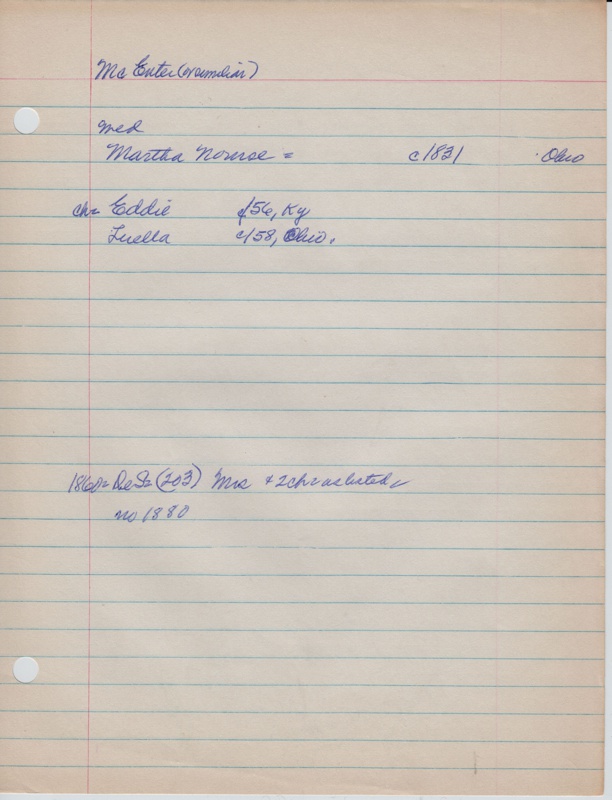 Mc Enter (or similiar)
med
Martha Monroe = c/1831 Ohio
chr Eddie c/56, Ky
Luella c/58, Ohio.
1860= DeS= (203) Mrs + 2 chr as listed
no 1880